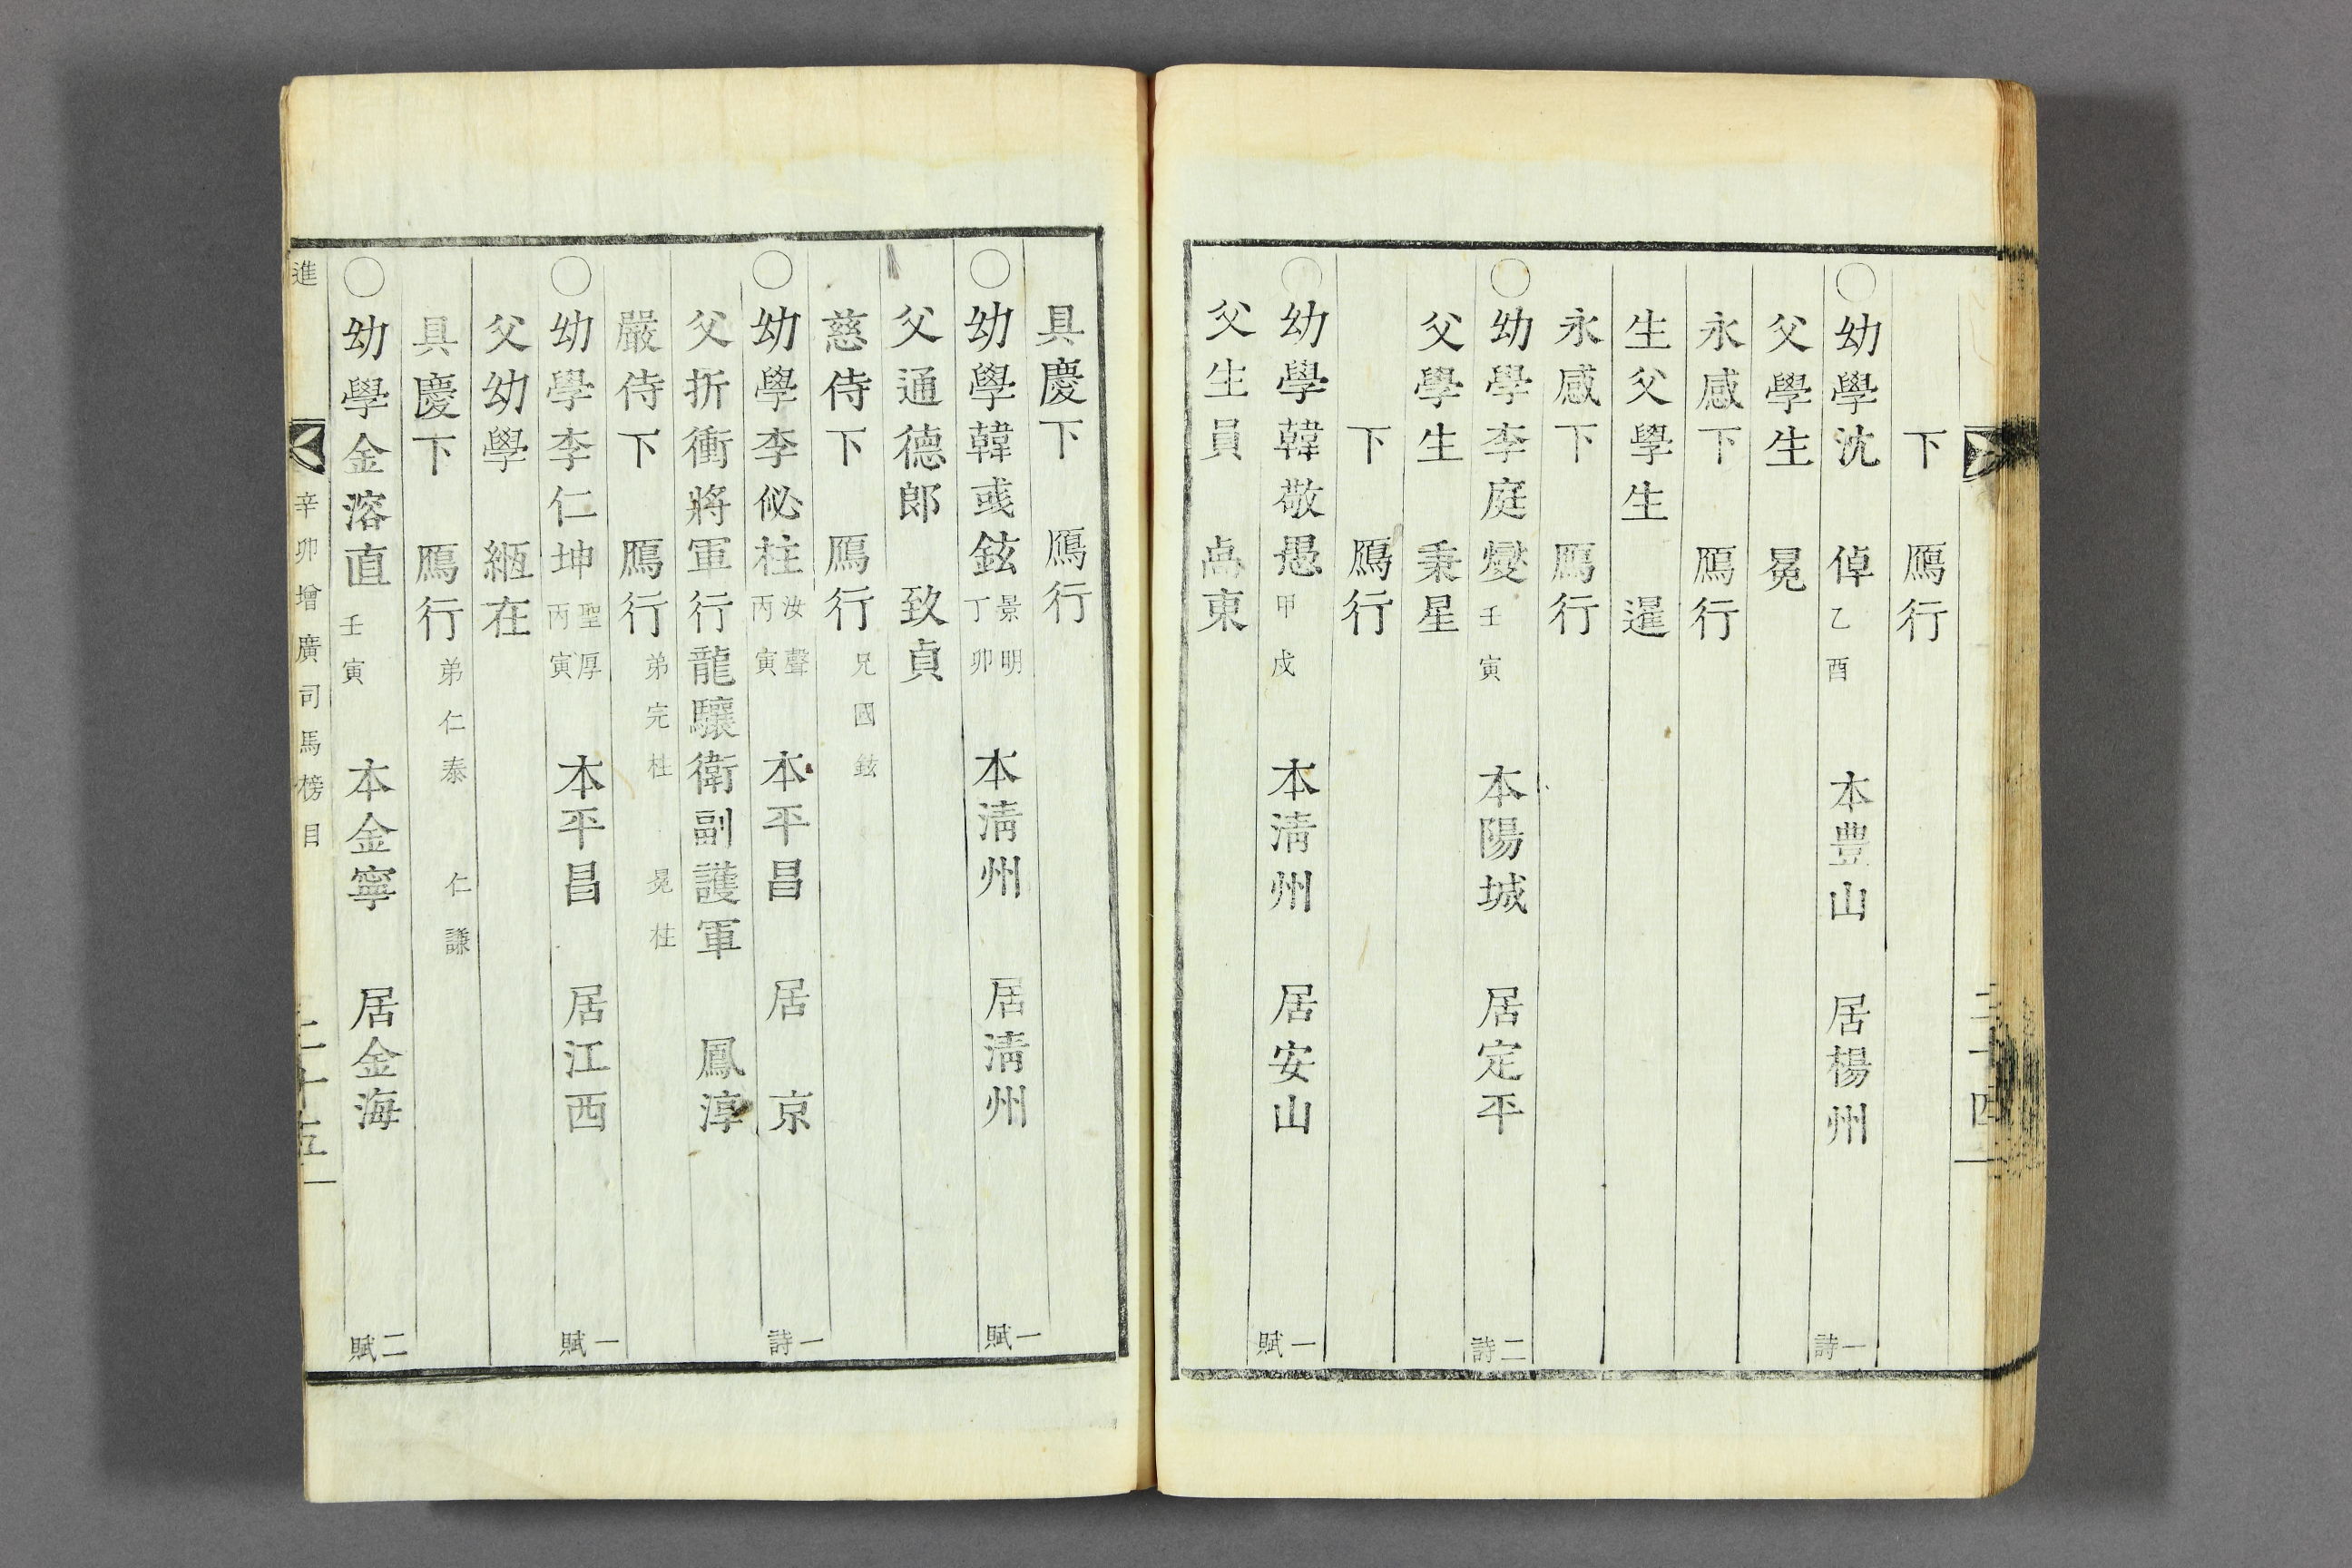 下 鴈行
幼學沈 倬 乙酉 本豊山 居楊州 一詩
父學生 冕
永感下 鴈行
生父學生 暹
永感下 鴈行
幼學李庭燮 壬寅 本陽城 居定平 二詩
父學生 秉星
下 鴈行
幼學韓敬愚 甲戌 本淸州 居安山 一賦
父生員 卨東
二十四
具慶下 鴈行
幼學韓彧鉉 景明 丁卯 本淸州 居淸州 一賦
父通德郎 致貞
慈侍下 鴈行 兄國鉉
幼學李佖柱 汝聲 丙寅 本平昌 居 京 一詩
父折衝將軍行龍驤衛副護軍 鳳淳
嚴侍下 鴈行 弟完柱 晃柱
幼學李仁坤 聖厚 丙寅 本平昌 居江西 一賦
父幼學 緪在
具慶下 鴈行 弟仁泰 仁謙
幼學金溶直 壬寅 本金寧 居金海 二賦
進 辛卯增廣司馬榜目 二十五